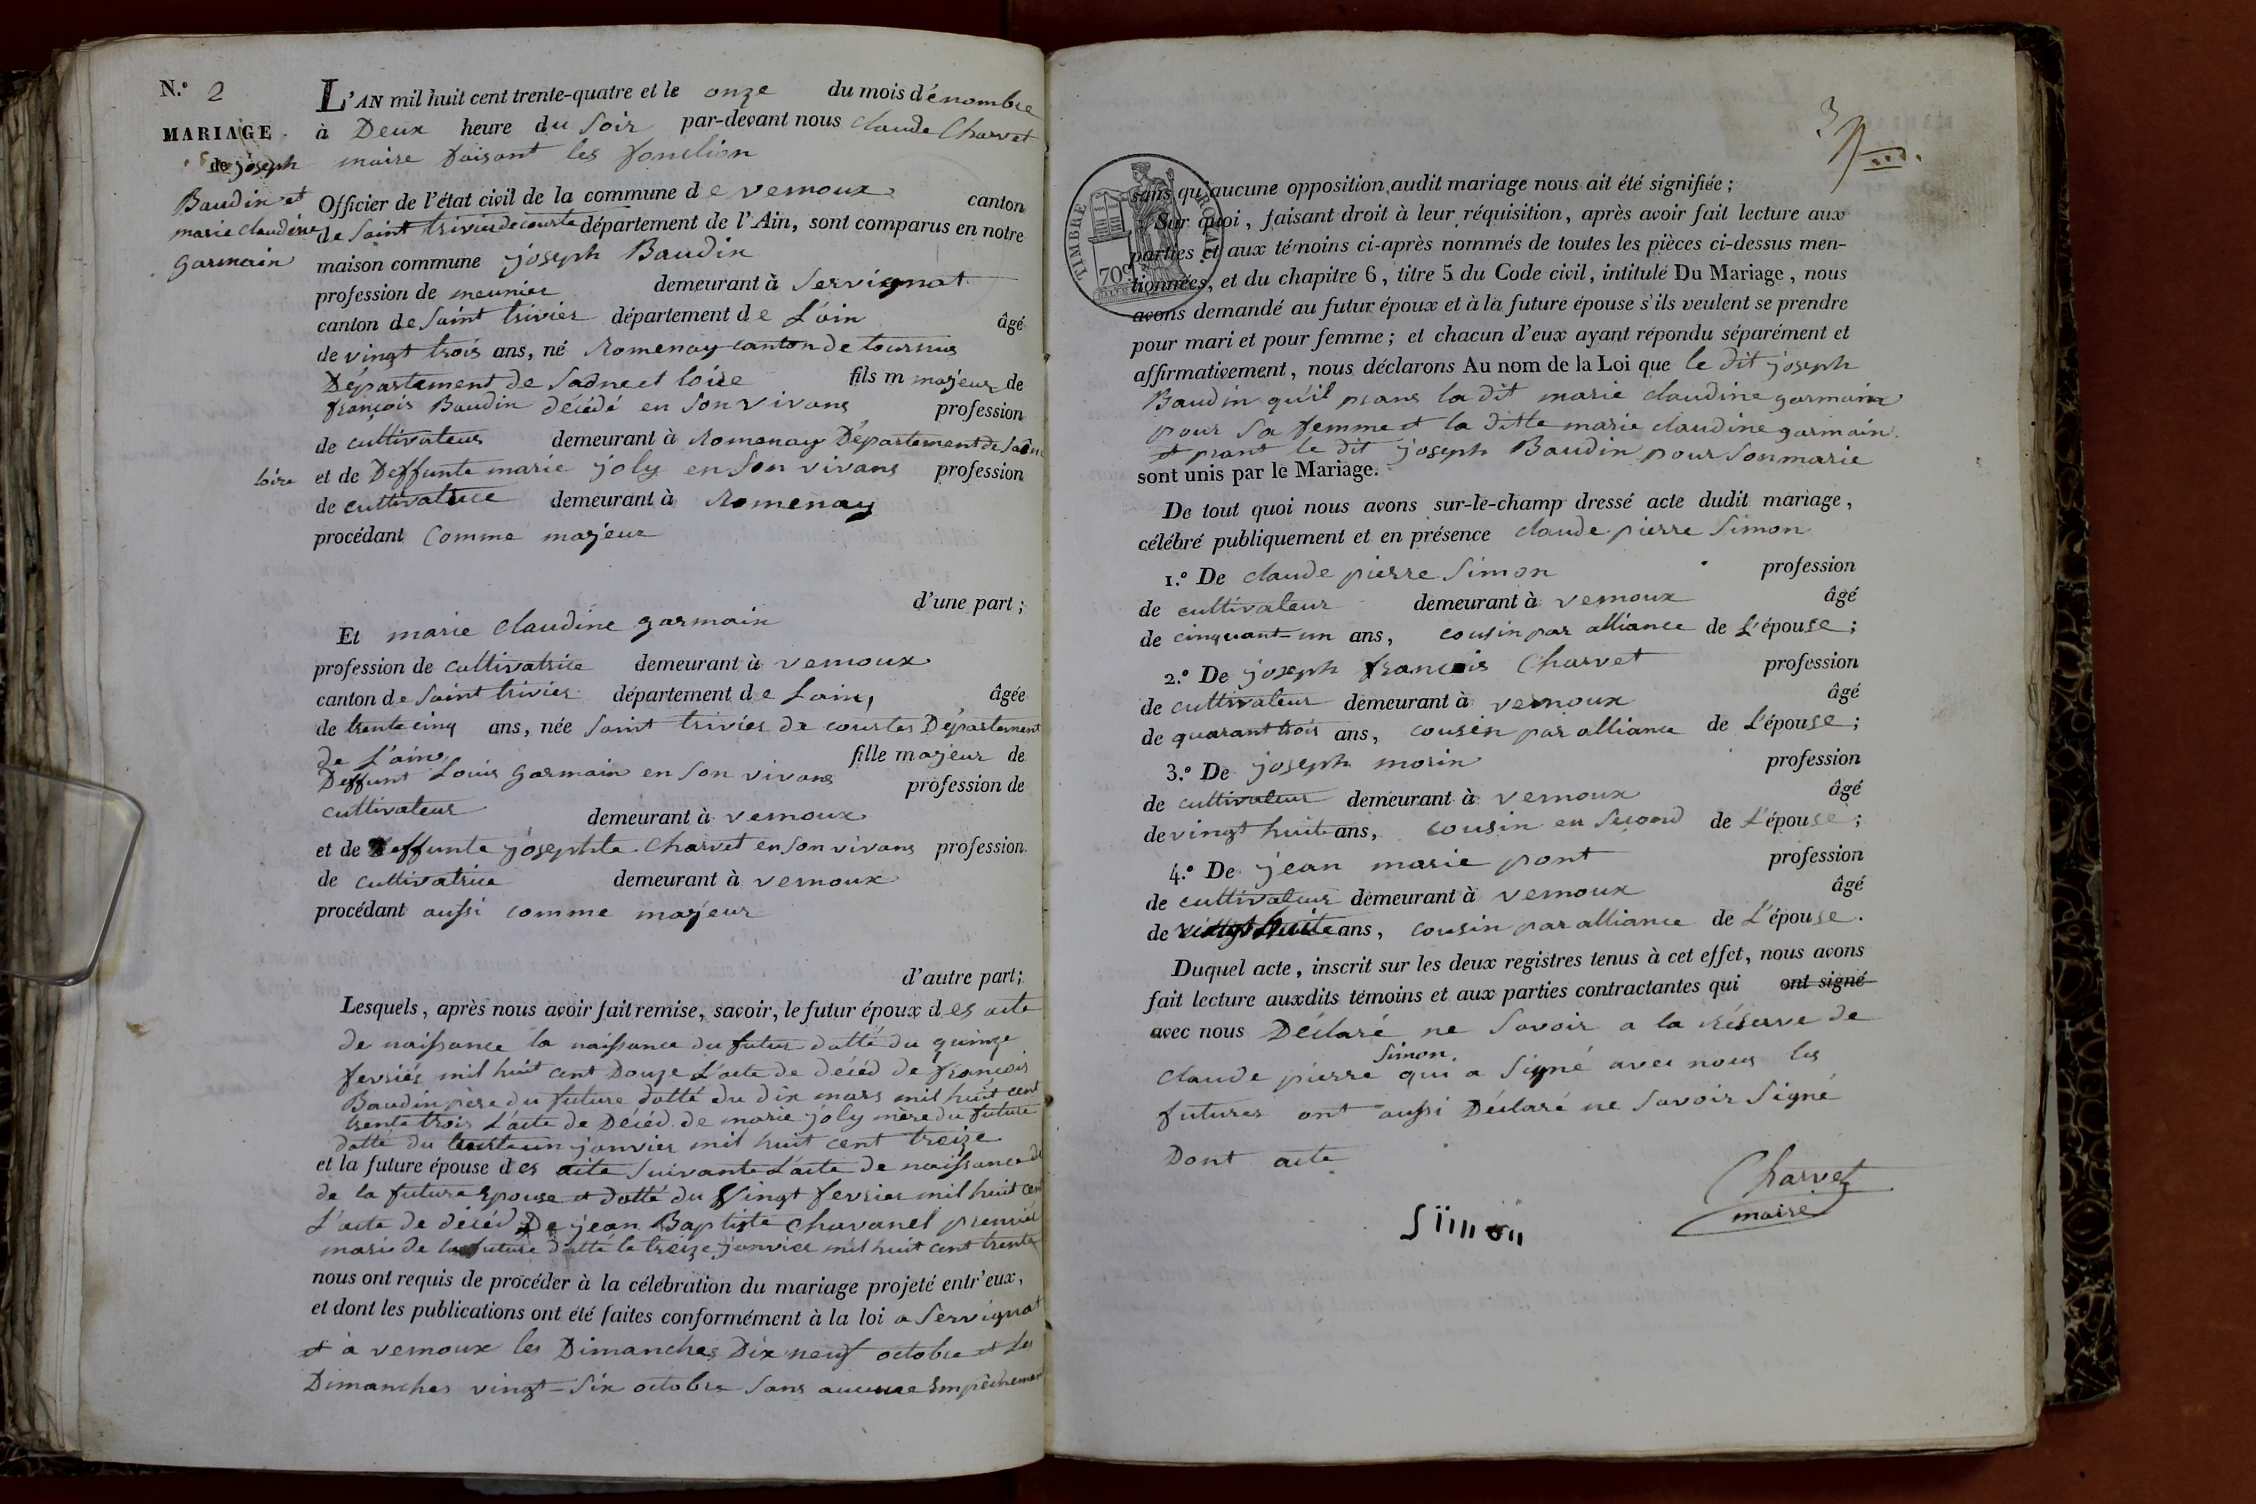 N.º 2
MARIAGE
de joseph
Baudin et
marie claudine
garmain
L'AN mil huit cent trente-quatre et le onze du mois d'énombre
à Deux heure du Soir par-devant nous Claude Charvet
maire faisant les fonclion
Officier de l'état civil de la commune de vernoux canton
de Saint triviers de courte département de l'Ain, sont comparus en notre
maison commune joseph Baudin
profession de meunier demeurant à Servignat
canton de Saint trivier département de L'ain âgé
de vingt trois ans, né Romenay canton de tournus
Département de Saône et loire fils m majeur de
françois Baudin décédé en Son vivans profession
de cultivateur demeurant à Romenay Département de Saône
loire et de Deffunte marie joly en Son vivans profession
de cultivatrice demeurant à Romenay
procédant Comme majeur
d'une part ;
Et marie Claudine garmain
profession de cultivatrice demeurant à vernoux
canton de Saint trivier département de Lain, âgée
de trente cinq ans, née Saint triviér de courtes Département
de L'ain fille majeur de
Deffunt Louis garmain en Son vivans profession de
cultivateur demeurant à vernoux
et de Deffunte josephte Charvet en Son vivans profession
de cultivatrice demeurant à vernoux
procédant aussi comme majeur
d'autre part ;
Lesquels, après nous avoir fait remise, savoir, le futur époux des acte
de naissance la naissance du futur datté du quinze
fevrier mil huit cent Douze L'acte de décéd de françois
Baudin père du future datté du dix mars mil huit cent
trente trois L'acte de Décéd de marie joly mère du future
datté du trente un janvier mil huit cent treize
et la future épouse des acte Suivante L'acte de naissance de
de la future Epouse et datté du Vingt fevrier mil huit cent
L'acte de décéd De jean Baptiste Chavanel premier
marie de la future datté le treize janvier mil huit cent trente
nous ont requis de procéder à la célébration du mariage projeté entr'eux,
et dont les publications ont été faites conformément à la loi a Servignat
et à vernoux les Dimanches Dix neuf octobre et les
Dimanches vingt-Six octobre Sans aucune Empêchement
TIMBRE ROYAL
70c
sans qu'aucune opposition audit mariage nous ait été signifiée ;
Sur quoi, faisant droit à leur réquisition, après avoir fait lecture aux
parties et aux témoins ci-après nommés de toutes les pièces ci-dessus men-
tionnées, et du chapitre 6, titre 5 du Code civil, intitulé Du Mariage, nous
avons demandé au futur époux et à la future épouse s'ils veulent se prendre
pour mari et pour femme ; et chacun d'eux ayant répondu séparément et
affirmativement, nous déclarons Au nom de la Loi que le dit joseph
Baudin qu'il prans la dit marie claudine garmain
pour Sa femme et la ditte marie claudine garmain
et prant le dit joseph Baudin pour Son marie
sont unis par le Mariage.
De tout quoi nous avons sur-le-champ dressé acte dudit mariage,
célébré publiquement et en présence claude pierre Simon
1.º De claude pierre Simon profession
de cultivateur demeurant à vernoux âgé
de cinquant-un ans, cousin par alliance de L'épouse ;
2.º De joseph françois Charvet profession
de cultivateur demeurant à vernoux âgé
de quarant trois ans, cousin par alliance de L'épouse ;
3.º De joseph morin profession
de cultivateur demeurant à vernoux âgé
de vingt huit ans, cousin en Second de L'épouse ;
4.º De jean marie pont profession
de cultivateur demeurant à vernoux âgé
de vingt huite ans, cousin par alliance de L'épouse.
Duquel acte, inscrit sur les deux registres tenus à cet effet, nous avons
fait lecture auxdits témoins et aux parties contractantes qui ont signé
avec nous Déclaré ne Savoir a la réserve de
Simon
Claude pierre qui a Signé avec nous les
futures ont aussi Déclaré ne Savoir Signé
Dont acte
Charvet
maire
Simon